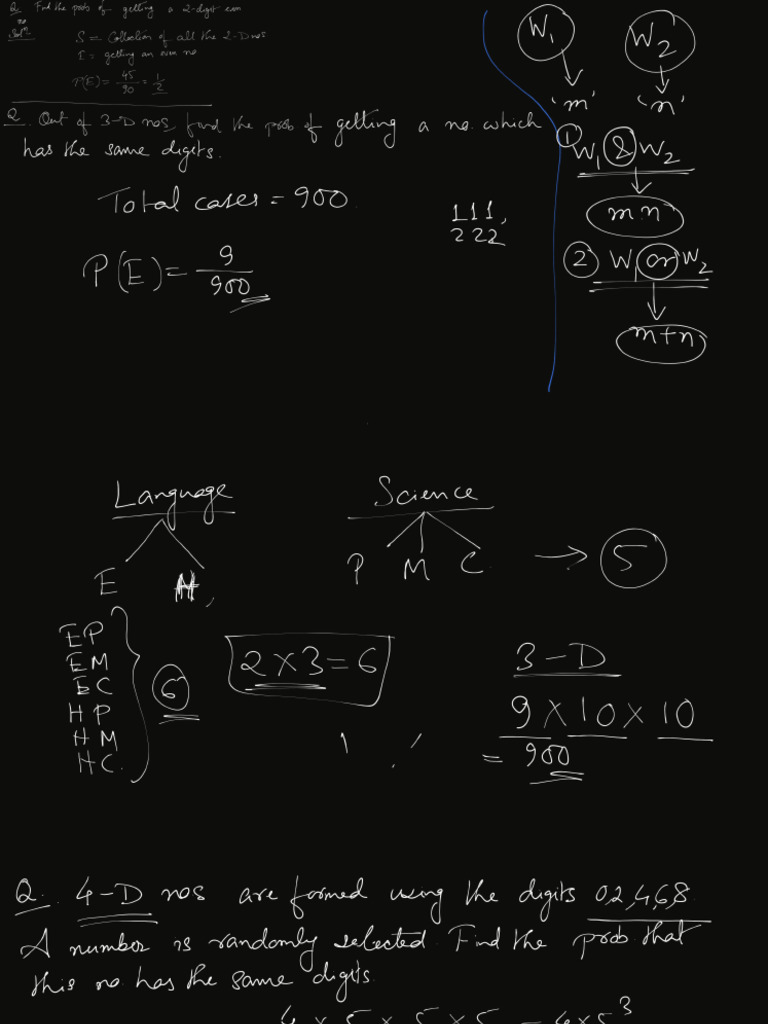 Q. Find the prob of getting a 2-digit even no
Soln
S = Collection of all the 2-D nos
E = getting an even no
P(E) = 45/90 = 1/2
Q. Out of 3-D nos, find the prob of getting a no. which
has the same digits.
Total cases = 900
111,
222
P(E) = 9/900
W1 W2
'm' 'n'
① W1 & W2
mn
② W1 or W2
m+n
Language
E H,
Science
P M C → 5
EP
EM
EC
HP
HM
HC.
6
2×3=6
3-D
9×10×10
= 900
Q. 4-D nos are formed using the digits 0,2,4,6,8.
A number is randomly selected. Find the prob that
this no has the same digits.
4 × 5 × 5 × 5 = 4×5³